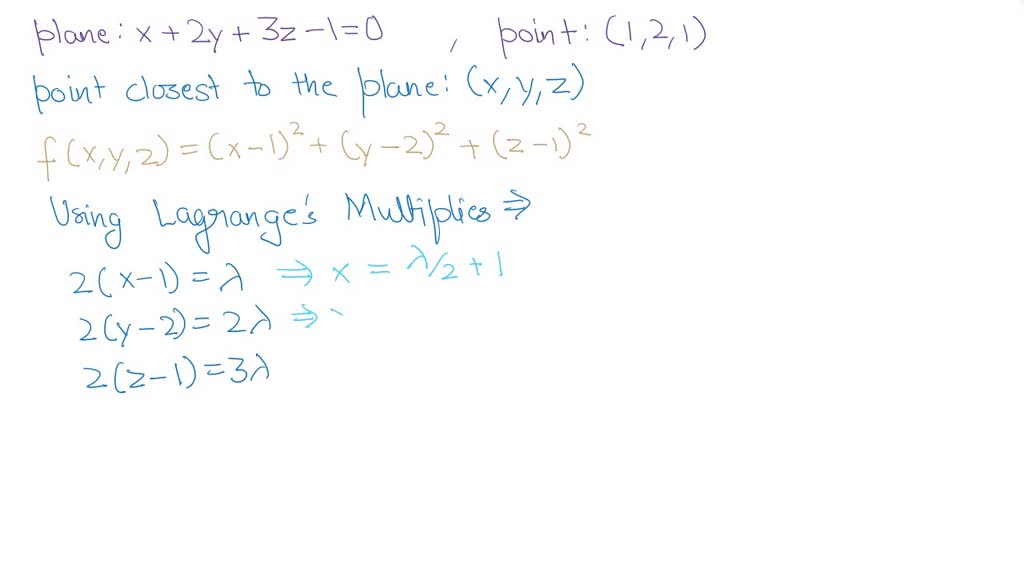 plane: x + 2y + 3z - 1 = 0 , point: (1,2,1)
point closest to the plane: (x,y,z)
f(x,y,z) = (x-1)² + (y-2)² + (z-1)²
Using Lagrange's Multiplies ⇒
2(x-1) = λ ⇒ x = λ/2 + 1
2(y-2) = 2λ ⇒
2(z-1) = 3λ